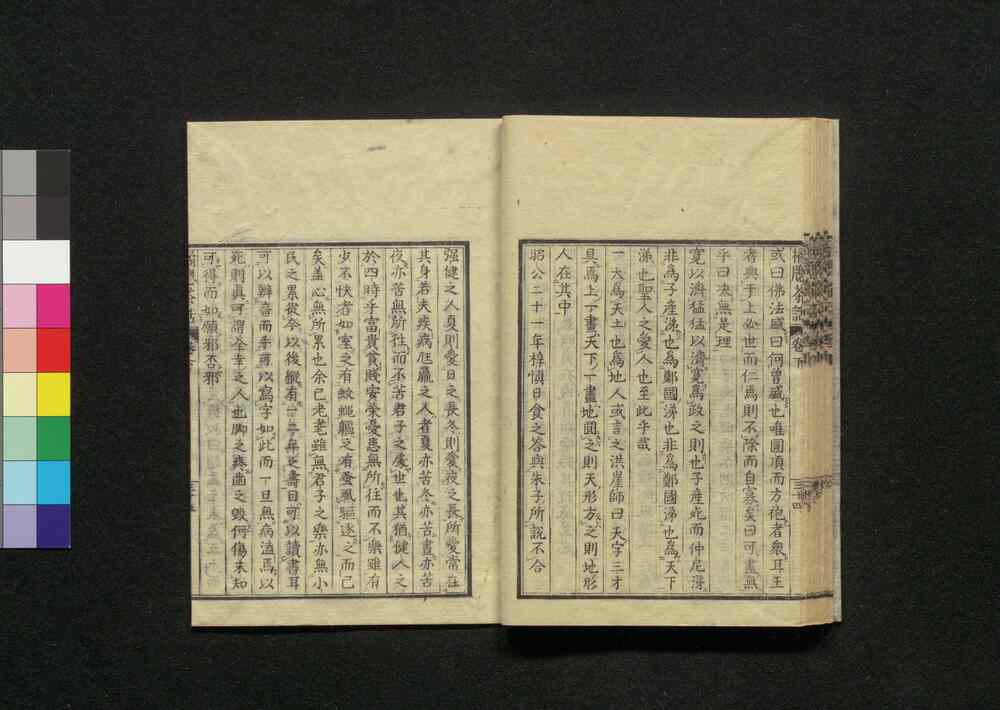 橘牕茶話 卷下
或曰佛法盛曰何曽盛也唯圓頂而方袍者衆耳王
者興于上必世而仁焉則不除而自寡矣曰可盡無
乎曰决無是理
寛以濟猛猛以濟寛爲政之則也子産死而仲尼涕
非爲子産涕也爲鄭國涕也非爲鄭國涕也爲天下
涕也聖人之愛人也至此乎哉
一大爲天土也爲地人或言之洪崖師曰天字三才
具焉上一畫天下一畫地圓之則天形方之則地形
人在其中
昭公二十一年梓愼日食之答與朱子所説不合
强健之人夏則愛日之長冬則愛夜之長所愛常在
其身若夫疾病尫羸之人者夏亦苦冬亦苦晝亦苦
夜亦苦無所往而不苦君子之處世也其猶健人之
於四時乎富貴貧賤安榮憂患無所往而不樂雖有
少不快者如室之有蚊蠅軀之有蚤虱驅逐之而已
矣盖心無所累也余已老耄雖無君子之樂亦無小
民之累從今以後縱有一二年之壽目可以讀書耳
可以辨音而手可以寫字如此而一旦無病溘焉以
死則眞可謂全幸之人也脚之疼齒之毀何傷未知
可得而如願邪否邪